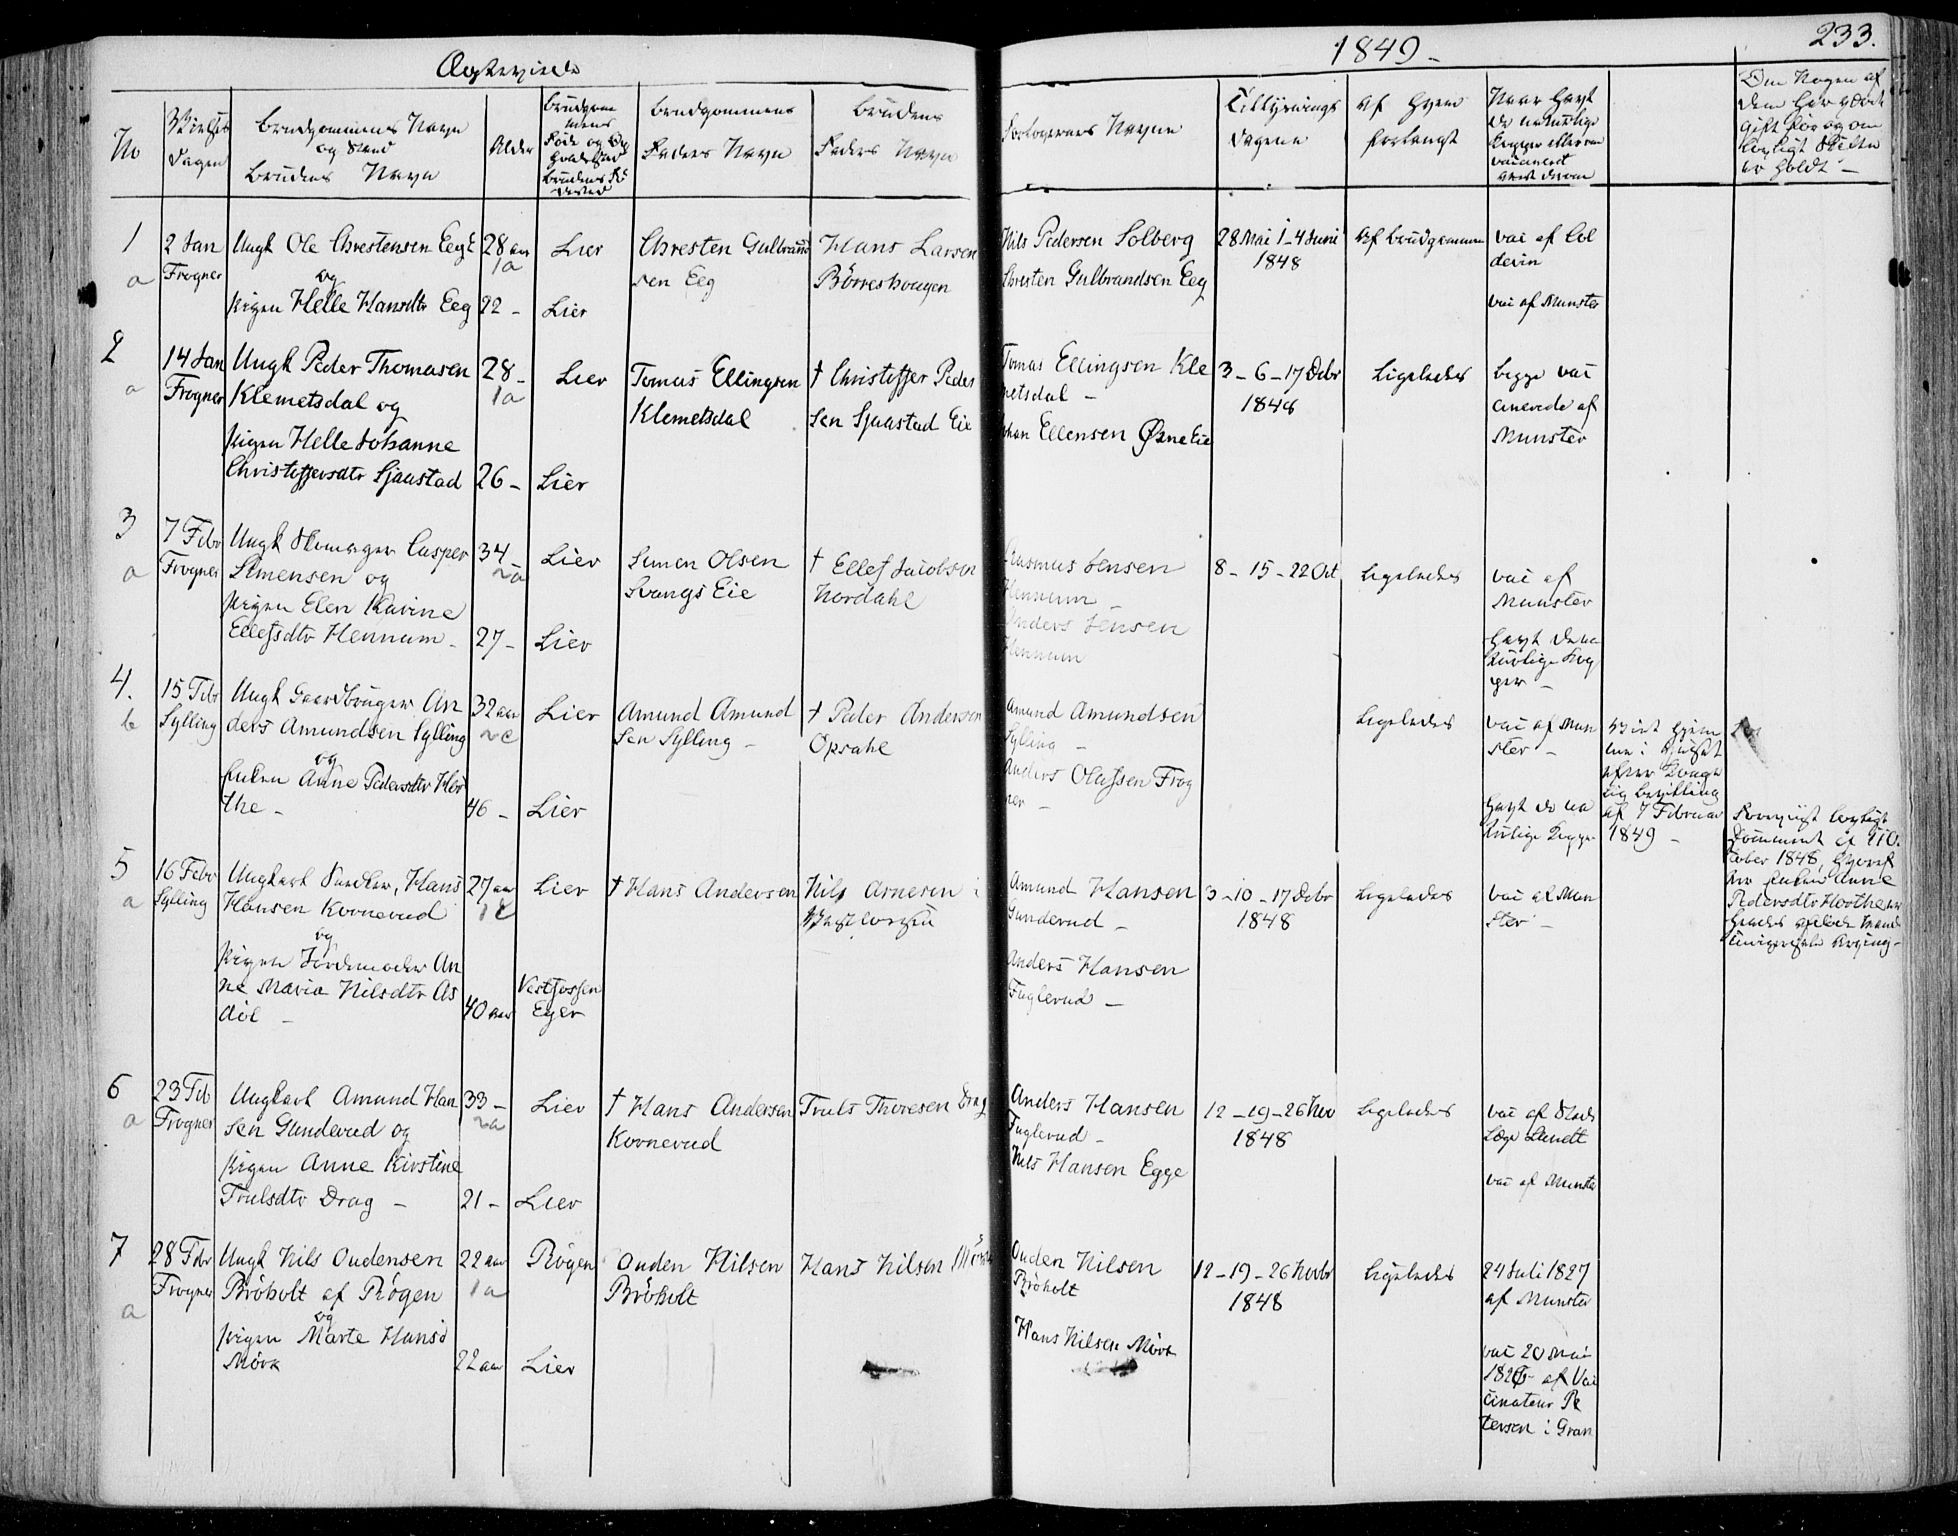 Ægteviede
1849 –
233.
No
Vielses
Dagen
Brudgommens Navn
og Stand
Brudens Navn
Alder
Brudgom
mens
Brudgommens
Faders Navn
Brudens
Faders Navn
Forlovernes Navne
Tillysnings
Dagene
Af Hvem
forlangt
Naar havt
de naturlige
Kopper eller ere
vaccineret
Om Nogen af
dem har været
gift før og om
lovligt Skifte
er holdt –
1
a
2 Jan
Frogner
Ungk Ole Christensen Eeg
og
Pigen Helle Hansdtr Eeg
28 aar
1a
22 –
Lier
Lier
Christen Gulbrand
sen Eeg
Hans Larsen
Børreshougen
Nils Pedersen Solberg
Christen Gulbrandsen Eeg
28 Mai 1 – 4 Juni
1848
Af Brudgommen
vac af Col
devin
vac af Munster
2
a
14 Jan
Frogner
Ungk Peder Thomasen
Klemetsdal og
Pigen Helle Johanne
Christoffersdtr Sjaastad
28 –
1a
26 –
Lier
Lier
Tomas Ellingsen
Klemetsdal
† Christoffer Peder
sen Sjaastad Eie
Tomas Ellingsen Kle
metsdal –
Johan Ellensen Øsne Eie
3 – 6 – 17 Debr
1848
Ligeledes
begge vac
cinerede af
Munster
3
a
7 Febr
Frogner
Ungk Skomager Casper
Simensen og
Pigen Elen Karine
Ellefsdtr Hennum –
34 –
2a
27 –
Lier
Lier
Simen Olsen
Svangs Eie
† Ellef Jacobsen
Nordahl
Rasmus Jensen
Hennum –
Anders Jensen
Hennum
8 – 15 – 22 Oct
Ligeledes
vac af
Munster
havt de na
turlige Kop
per –
4.
b
15 Feb
Sylling
Ungk Gaardbruger An
ders Amundsen Sylling
og
Enken Anne Pedersdtr Hør
the –
32 aar
2c
46 –
Lier
Lier
Amund Amund
sen Sylling –
† Peder Andersen
Opsahl
Amund Amundsen
Sylling –
Anders Olafsen Frog
ner –
Ligeledes
vac af Mun
ster –
havt de na
turlige Kopper
Viet hjem
me i Huset
efter Konge
lig Bevilling
af 7 Februar
1849 –
Forevist lovligt
Document af
tober 1848, hvoraf
Enken Anne
Pedersdtr
5
a
16 Febr
Sylling
Ungkarl Hans
Hansen Kovnerud
og
Pigen Jordemoder An
ne Maria Nilsdtr As
døl –
27 aar
1c
40 aar
Lier
Vestfossen
Eger
† Hans Andersen
Nils Arnesen i
Vestfossen
Amund Hansen
Gunderud –
Anders Hansen
Fuglerud –
3 – 10 – 17 Debr
1848
Ligeledes
vac af Mun
ster –
6
a
23 Feb
Frogner
Ungkarl Amund Han
sen Gunderud og
Pigen Anne Kirstine
Trulsdtr Drag –
33 –
2a
21 –
Lier
Lier
† Hans Andersen
Kovnerud
Truls Thoresen Drag
Anders Hansen
Fuglerud –
Nils Hansen Egge
12 – 19 – 26 Nov
1848
Ligeledes
vac af Stads
Læge Lundt
vac af Munster
7
a
28 Febr
Frogner
Ungk Nils Oudensen
Brøholt af Røgen
og
Pigen Marte Hansd
Mørk
22 aar
1a
22 aar
Røgen
Lier
Ouden Nilsen
Brøholt
Hans Nilsen Mørk
Ouden Nilsen
Brøholt
Hans Nilsen Mørk
12 – 19 – 26 Novbr
1848
Ligeledes
24 Juli 1827
af Munster
vac 20 Mai
af Vac
cinateur Pe
tersen i Gran